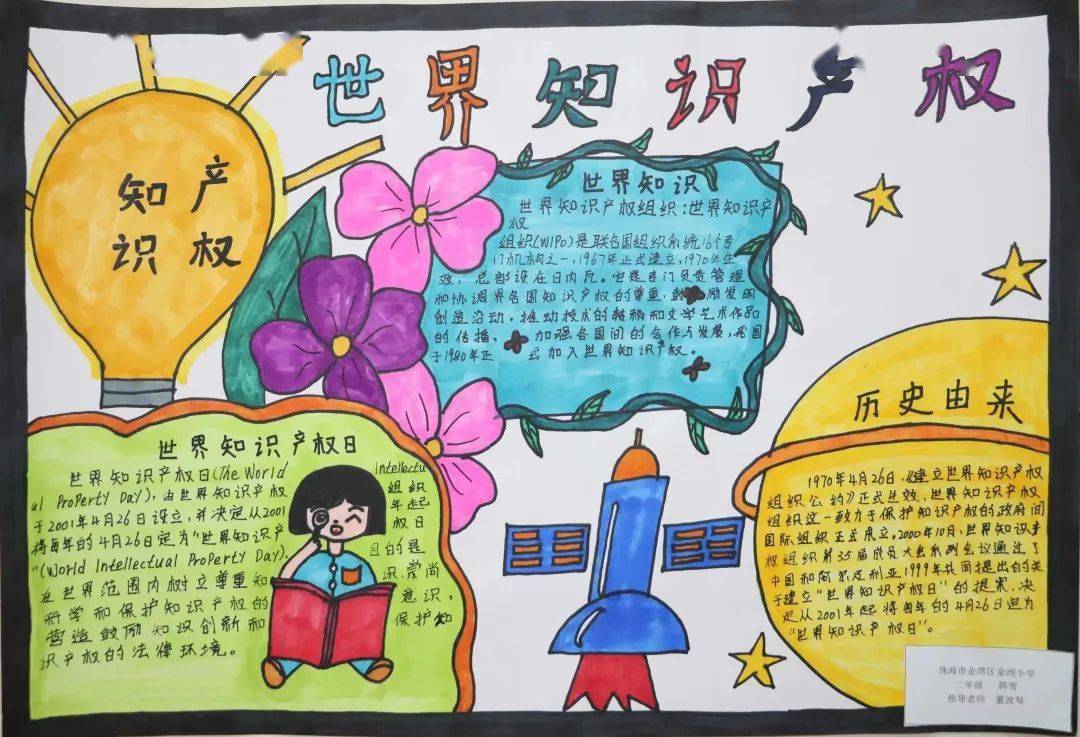 世界知识产权
知产
识权
世界知识
世界知识产权组织:世界知识产
权
组织(WIPO)是联合国组织系统16个专
门机构之一,1967年正式建立,1970年生
效,总部设在日内瓦。它是专门负责管理
和协调界各国知识产权的尊重,鼓励发明
创造活动,推动技术的转移和文学艺术作品
的传播、加强各国间的合作与发展,我国
于1980年正式加入世界知识产权。
世界知识产权日
世界知识产权日(The World Intellectu
al ProPerty Day),由世界知识产权组织
于2001年4月26日设立,并决定从2001年起
将每年的4月26日定为“世界知识产权日
”(World Intellectual ProPerty Day),目的是
在世界范围内树立尊重知识,崇尚
科学和保护知识产权的意识,
营造鼓励知识创新和保护知
识产权的法律环境。
历史由来
1970年4月26日,《建立世界知识产权
组织公约》正式生效,世界知识产权
组织这一致力于保护知识产权的政府间
国际组织正式成立。2000年10月,世界知识产
权组织第35届成员大会系列会议通过了
中国和阿尔及利亚1999年共同提出的关
于建立“世界知识产权日”的提案,决
定从2001年起将每年的4月26日定为
“世界知识产权日”。
珠海市金湾区金洲小学
二年级 韩雪
指导老师 董波琴